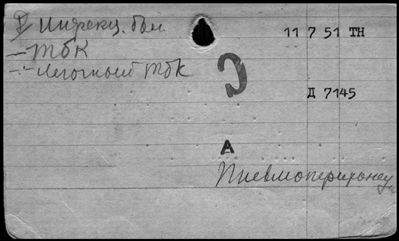 V Инфекц. бол
11 7 51 ТН
— ТБК
— " — Легочный ТБК
С
Д 7145
А
Пневмоперитонеум